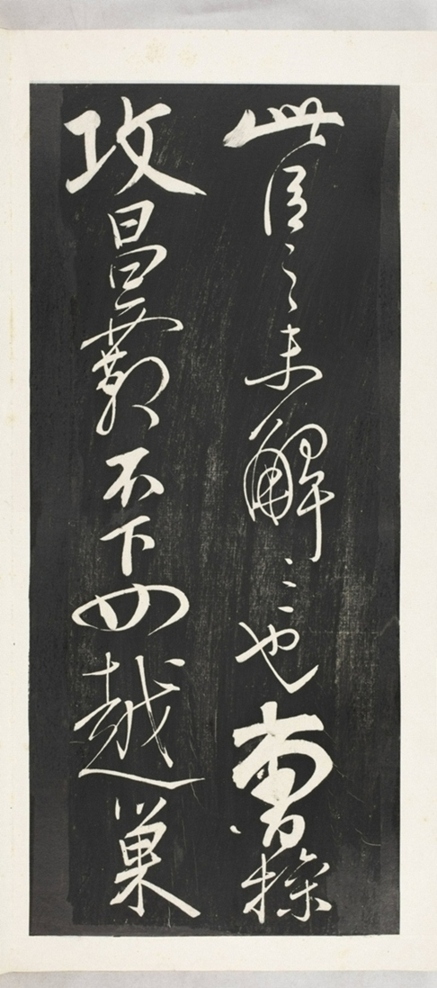 此臣之未解三也曹操
攻昌霸不下四越巢